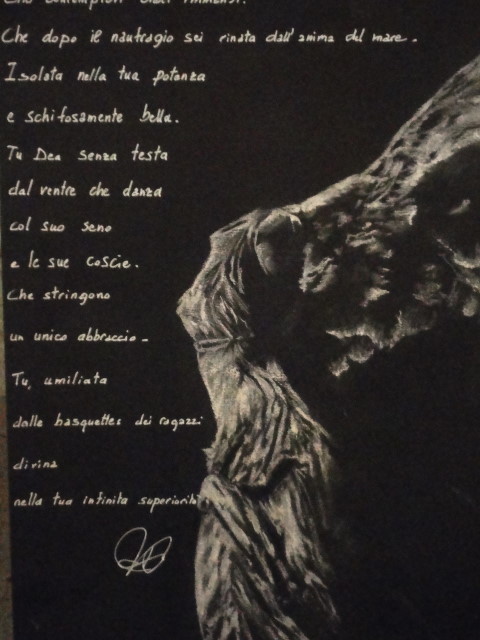 Che dopo il naufragio sei rinata dall'anima del mare.
Isolata nella tua potanza
e schifosamente bella.
Tu Dea senza testa
dal ventre che danza
col suo seno
e le sue coscie.
Che stringono
un unico abbraccio.
Tu, umiliata
dalle basquettes dei ragazzi
divina
nella tua infinita superiorità